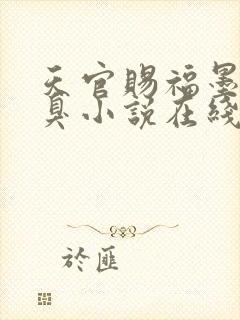 天官賜福墨
臭小説在綫
於匪